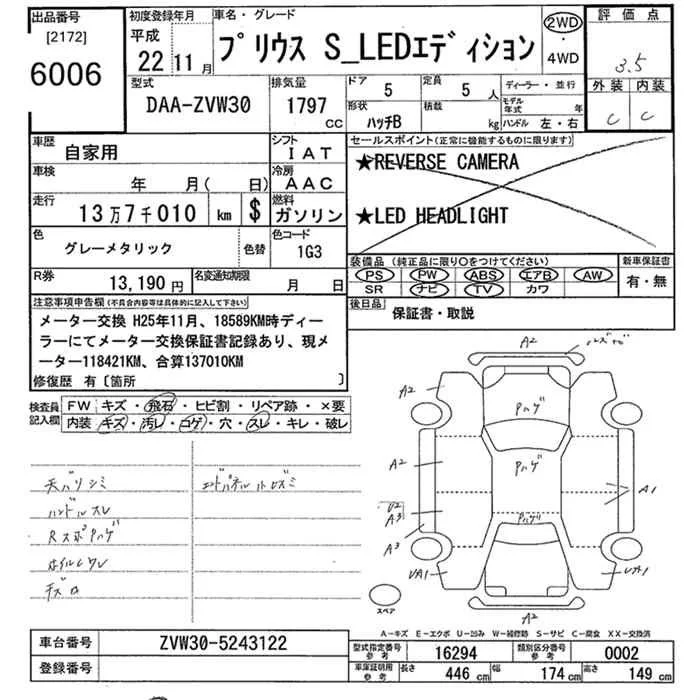 出品番号
[2172]
6006
初度登録年月
平成
22年11月
車名・グレード
プリウス S_LEDエディション
2WD
・
4WD
評価点
3.5
外装 内装
C C
型式
DAA-ZVW30
排気量
1797
CC
ドア
5
定員
5 人
形状
ハッチB
積載
kg
ディーラー・並行
モデル年式 年
ハンドル 左・右
車歴
自家用
シフト
IAT
車検
年 月( 日)
冷房
AAC
走行
13万7千010 km $
燃料
ガソリン
色
グレーメタリック
色替
色コード
1G3
R券
13,190 円
名変通知期限
月 日
セールスポイント(正常に機能するものに限ります)
★REVERSE CAMERA
★LED HEADLIGHT
装備品(純正品に限り○をつけてください)
PS PW ABS エアB AW
SR ナビ TV カワ
新車保証書
有・無
後日品
保証書・取説
注意事項申告欄(不具合内容等は具体的に記入して下さい)
メーター交換 H25年11月、18589KM時ディー
ラーにてメーター交換保証書記録あり、現メ
ーター118421KM、合算137010KM
修復歴 有〔箇所 〕
検査員
記入欄
FW キズ・飛石・ヒビ割・リペア跡・×要
内装 キズ・汚レ・コゲ・穴・スレ・キレ・破レ
天バリシミ
ハンドルスレ
RスポPハゲ
ホイルCワレ
キズ
A2
A2
Pハゲ
A2
Pハゲ
A1
U2
A3
Pハゲ
A3
UA1
UA1
A2
スペア
A-キズ E-エクボ U-凹み W-補修跡 S-サビ C-腐食 XX-交換済
車台番号
ZVW30-5243122
登録番号
型式指定番号
参考
16294
類別区分番号
参考
0002
車庫証明用
参考
長さ
446 cm
幅
174 cm
高さ
149 cm